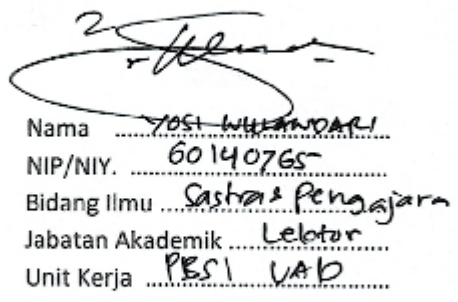 Nama ..... YOSI WULANDARI
NIP/NIY. ..... 60140765
Bidang Ilmu ..... Sastra & Pengajaran
Jabatan Akademik ..... Lektor
Unit Kerja ..... PBSI UAD